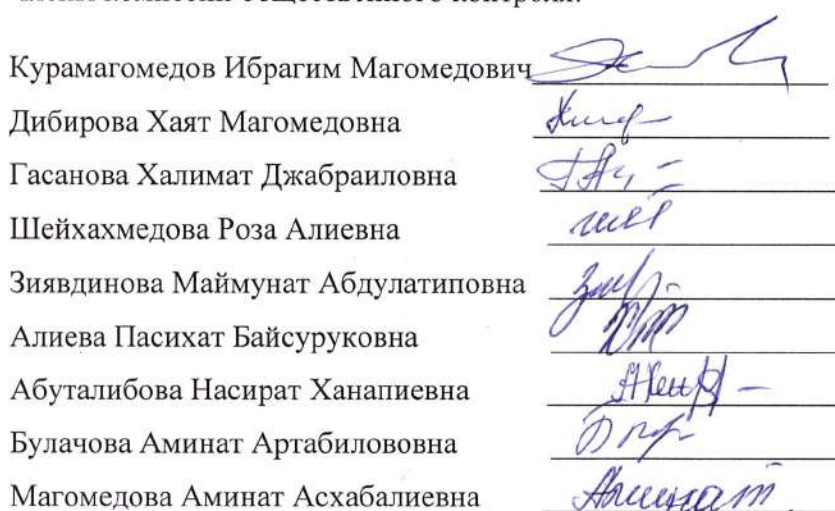 члены комиссии общественного контроля:
Курамагомедов Ибрагим Магомедович
Дибирова Хаят Магомедовна
Гасанова Халимат Джабраиловна
Шейхахмедова Роза Алиевна
Зиявдинова Маймунат Абдулатиповна
Алиева Пасихат Байсуруковна
Абуталибова Насират Ханапиевна
Булачова Аминат Артабилововна
Магомедова Аминат Асхабалиевна Аминат